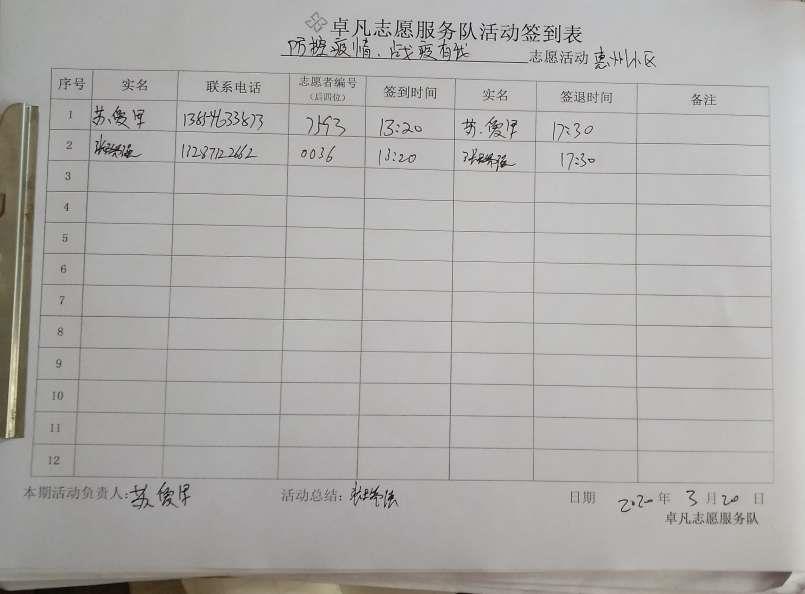 卓凡志愿服务队活动签到表
防控疫情、战疫有我 志愿活动 惠州小区
序号 实名 联系电话 志愿者编号（后四位） 签到时间 实名 签退时间 备注
1 苏爱军 13854633873 7593 13:20 苏爱军 17:30
2 13287122662 0036 13:20 17:30
3
4
5
6
7
8
9
10
11
12
本期活动负责人: 苏爱军 活动总结: 日期 2020年 3月20日
卓凡志愿服务队